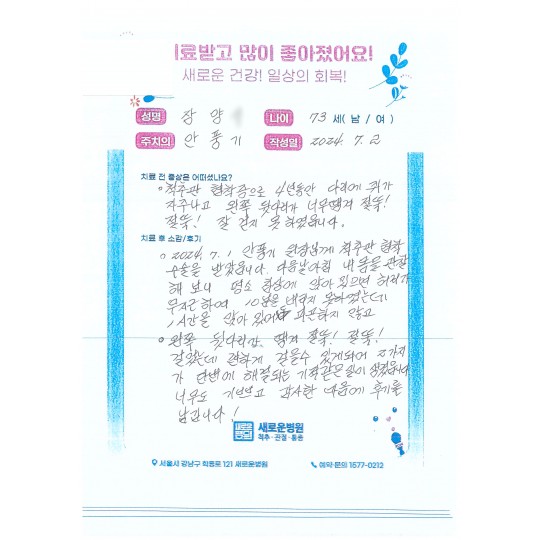 료받고 많이 좋아졌어요!
새로운 건강! 일상의 회복!
성명 장 양 나이 73 세( 남 / 여 )
주치의 안 풍 기 작성일 2024. 7. 2
치료 전 증상은 어떠셨나요?
척추관 협착증으로 4년동안 다리에 쥐가
자주나고 왼쪽 뒷다리가 너무땡겨 절뚝!
절뚝! 잘 걷지 못하였읍니다.
치료 후 소감/후기
2024. 7. 1 안풍기 원장님께 척추관 협착
수술을 받았읍니다. 다음날아침 내 몸을 관찰
해 보니 평소 침상에 앉아 있으면 허리가
무지근하여 10분을 배우지 못하였는데
1시간을 앉아 있어도 피곤하지 않고
왼쪽 뒷다리가 땡겨 절뚝! 절뚝!
걸었는데 편하게 걸을수 있게되어 2가지
가 단번에 해결되는 기적같은일이 생겼읍니다
너무도 기쁘고 감사한 마음에 후기를
남깁니다!
새로운병원
척추·관절·통증
서울시 강남구 학동로 121 새로운병원 예약·문의 1577-0212